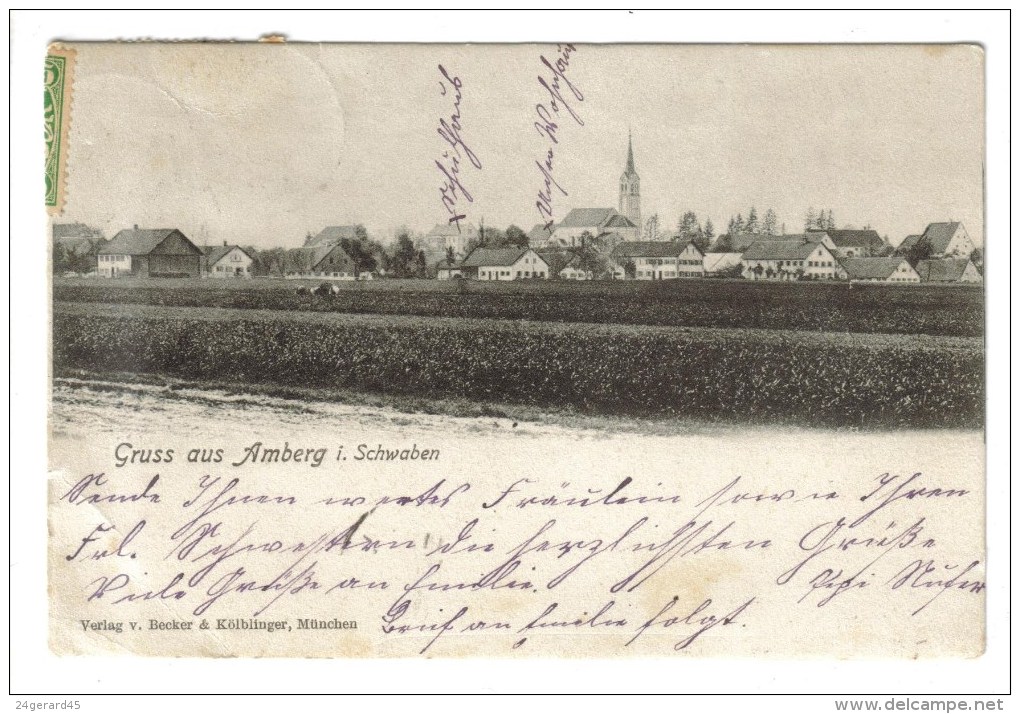 x Schulhaus
x Unser Wohnhaus
5
Gruss aus Amberg i. Schwaben
Sende Ihnen wertes Fräulein sowie Ihren
Frl. Schwestern die herzlichsten Grüße
Viele Grüße an Emilie. Pepi
Verlag v. Becker & Kölblinger, München
Brief an Emilie folgt.
24gerard45
www.delcampe.net